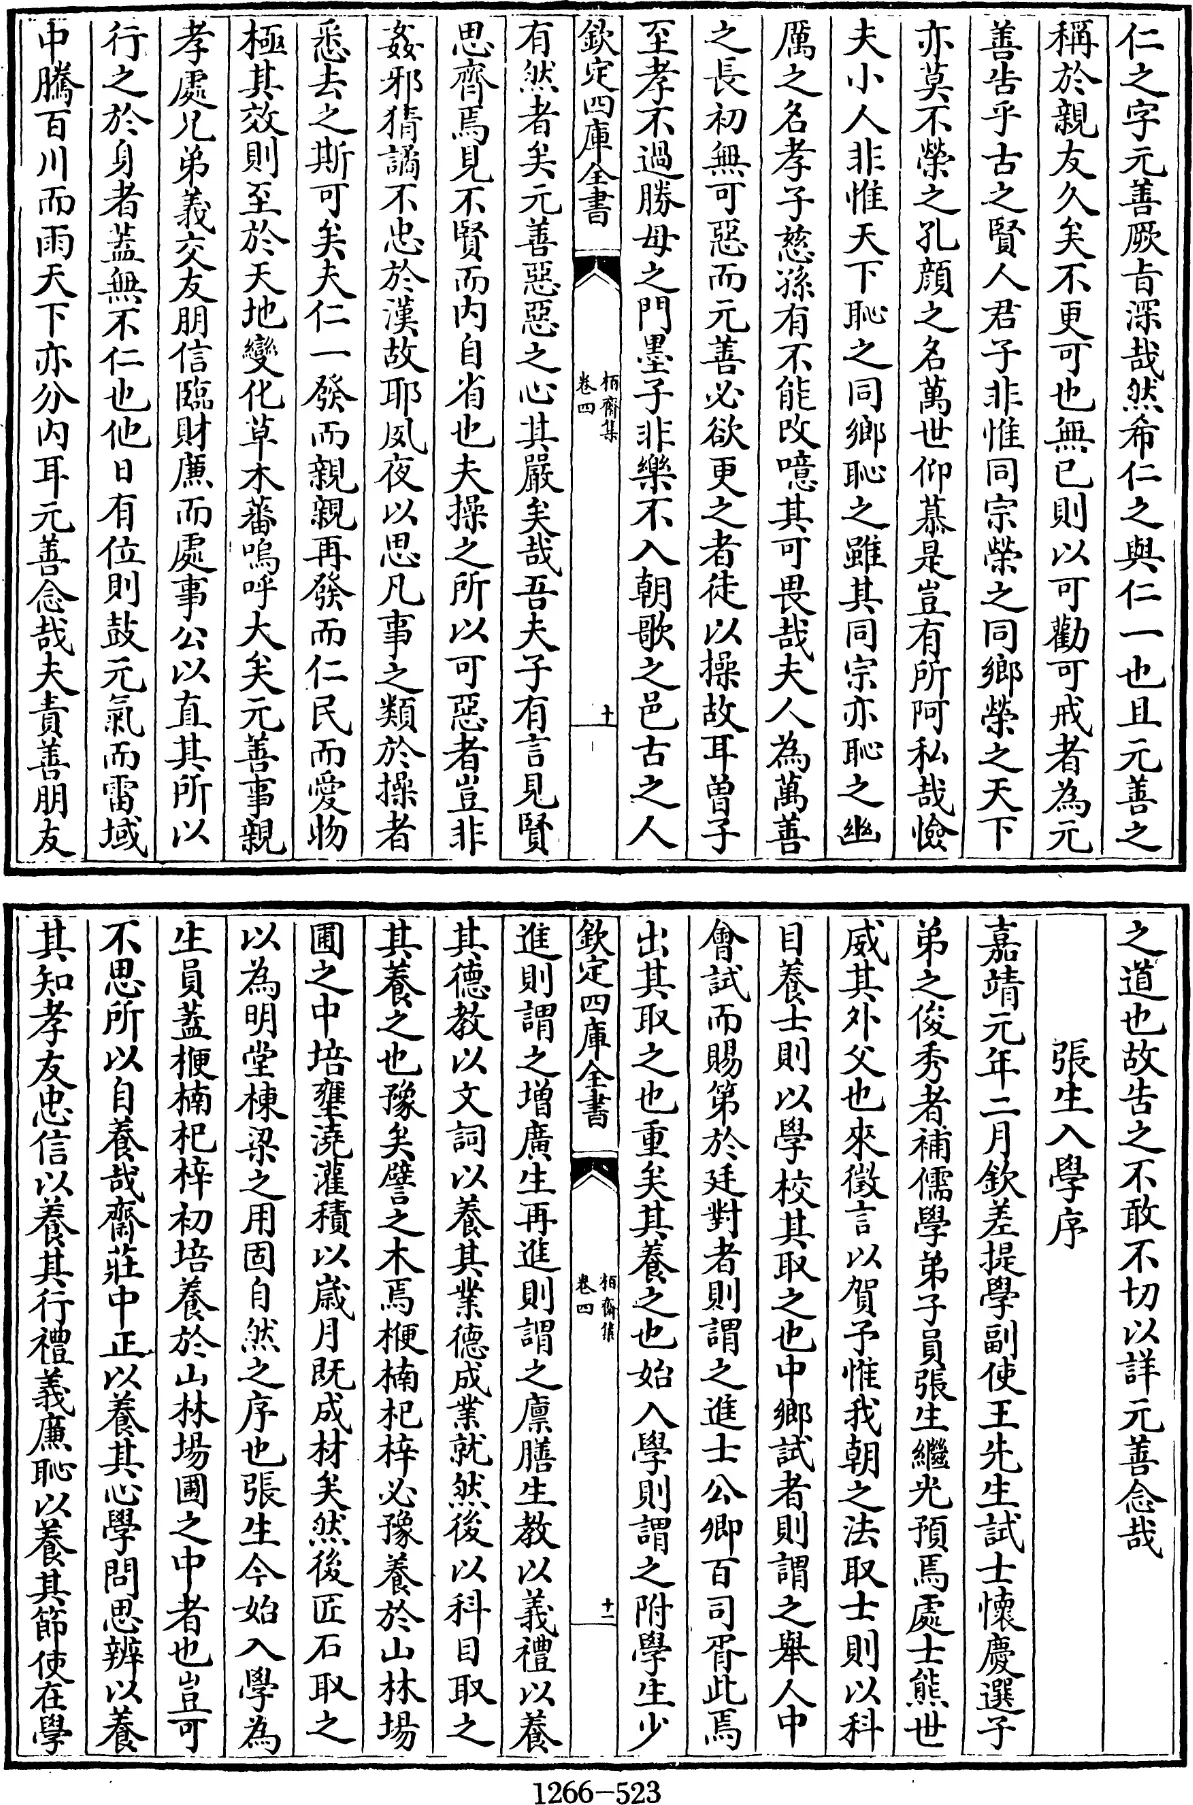 仁之字元善厥旨深哉然希仁之與仁一也且元善之
稱於親友久矣不更可也無已則以可勸可戒者為元
善告乎古之賢人君子非惟同宗榮之同鄉榮之天下
亦莫不榮之孔顏之名萬世仰慕是豈有所阿私哉憸
夫小人非惟天下恥之同鄉恥之雖其同宗亦恥之幽
厲之名孝子慈孫有不能改噫其可畏哉夫人為萬善
之長初無可惡而元善必欲更之者徒以操故耳曽子
至孝不過勝母之門墨子非樂不入朝歌之邑古之人
欽定四庫全書
栢齋集
卷四
十
有然者矣元善惡惡之心其嚴矣哉吾夫子有言見賢
思齊焉見不賢而内自省也夫操之所以可惡者豈非
姦邪猜譎不忠於漢故耶夙夜以思凡事之類於操者
悉去之斯可矣夫仁一發而親親再發而仁民而愛物
極其效則至於天地變化草木蕃嗚呼大矣元善事親
孝處兄弟義交友朋信臨財亷而處事公以直其所以
行之於身者蓋無不仁也他日有位則鼓元氣而雷域
中騰百川而雨天下亦分内耳元善念哉夫責善朋友
之道也故告之不敢不切以詳元善念哉
張生入學序
嘉靖元年二月欽差提學副使王先生試士懷慶選子
弟之俊秀者補儒學弟子員張生繼光預焉處士熊世
威其外父也來徵言以賀予惟我朝之法取士則以科
目養士則以學校其取之也中鄉試者則謂之舉人中
會試而賜第於廷對者則謂之進士公卿百司胥此焉
出其取之也重矣其養之也始入學則謂之附學生少
欽定四庫全書
栢齋集
卷四
十一
進則謂之增廣生再進則謂之廪膳生教以義禮以養
其德教以文詞以養其業德成業就然後以科目取之
其養之也豫矣譬之木焉楩楠杞梓必豫養於山林場
圃之中培壅澆灌積以歲月既成材矣然後匠石取之
以為明堂棟梁之用固自然之序也張生今始入學為
生員蓋楩楠杞梓初培養於山林場圃之中者也豈可
不思所以自養哉齋莊中正以養其心學問思辨以養
其知孝友忠信以養其行禮義亷恥以養其節使在學
1266-523